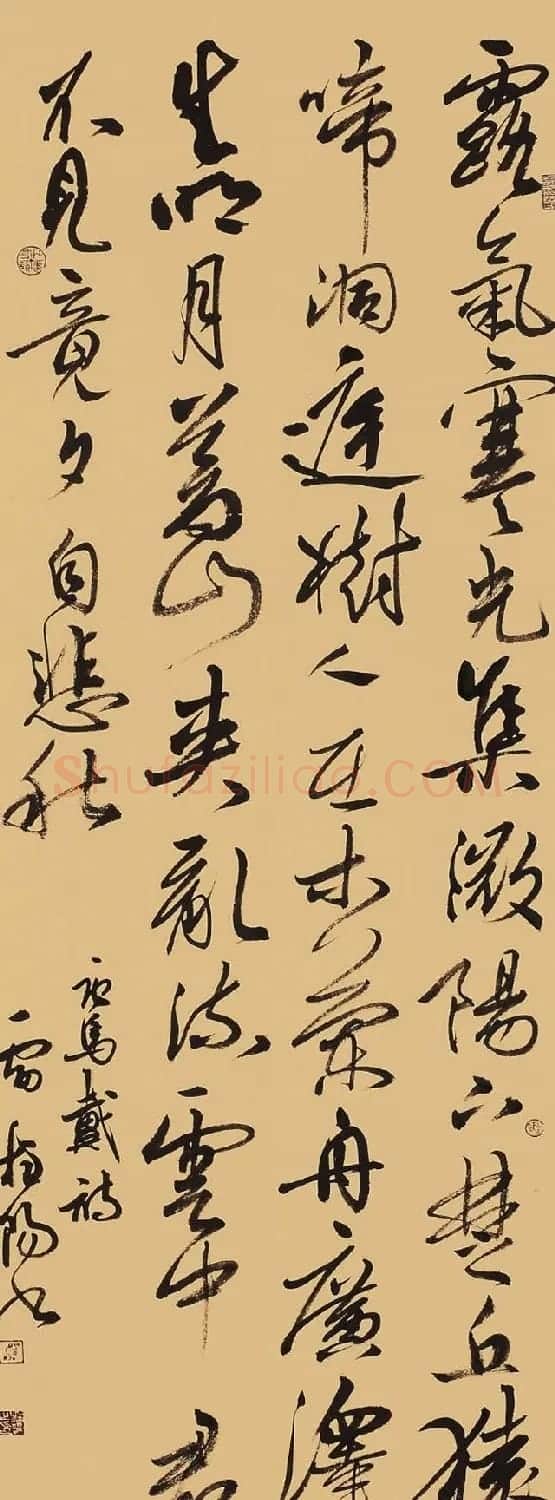 露氣寒光集微陽下楚丘猿
啼洞庭樹人在木蘭舟廣澤
生明月蒼山夾亂流雲中君
不見竟夕自悲秋
馬戴詩
雷 陽書
Shufaziliao.COM